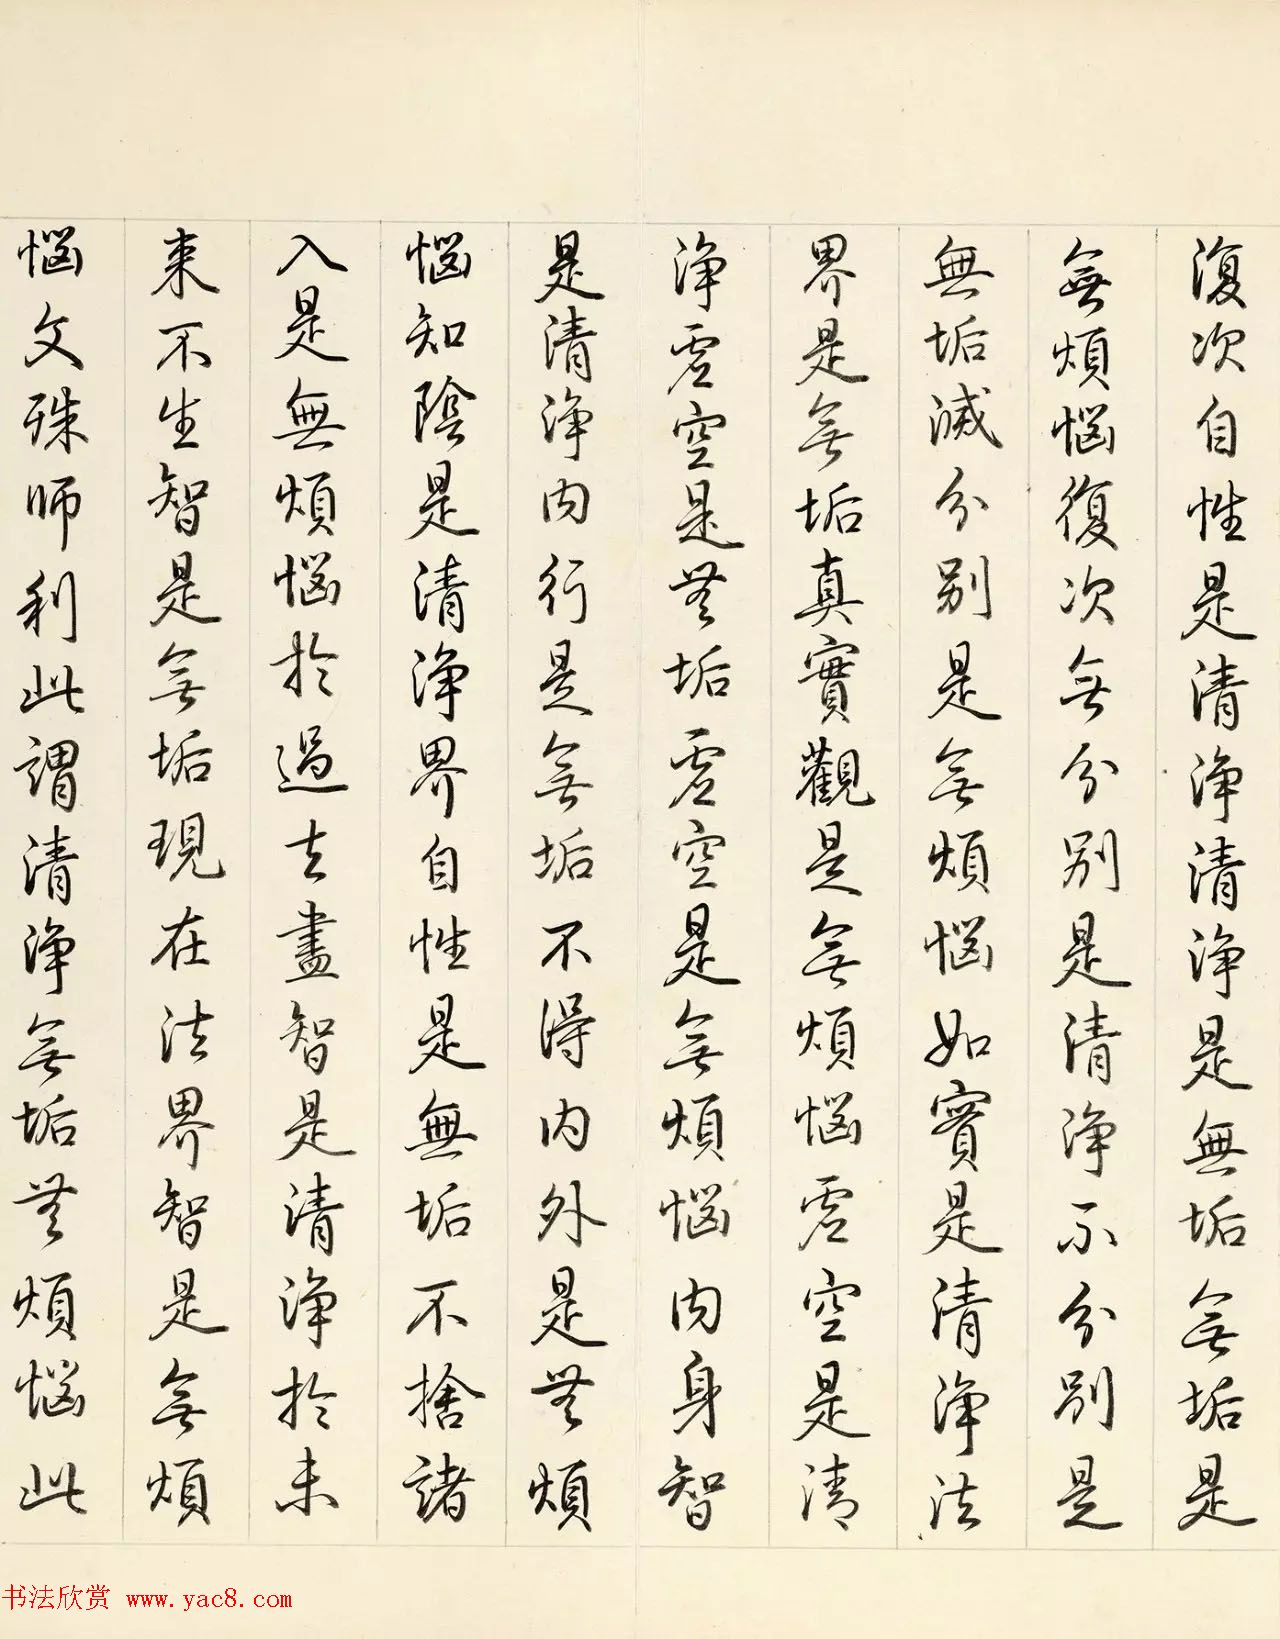 復次自性是清淨清淨是無垢無垢是
無煩惱復次無分別是清淨不分別是
無垢滅分別是無煩惱如實是清淨法
界是無垢真實觀是無煩惱虛空是清
淨虛空是無垢虛空是無煩惱內身智
是清淨內行是無垢不得內外是無煩
惱知陰是清淨界自性是無垢不捨諸
入是無煩惱於過去盡智是清淨於未
來不生智是無垢現在法界智是無煩
惱文殊師利此謂清淨無垢無煩惱此
书法欣赏 www.yac8.com